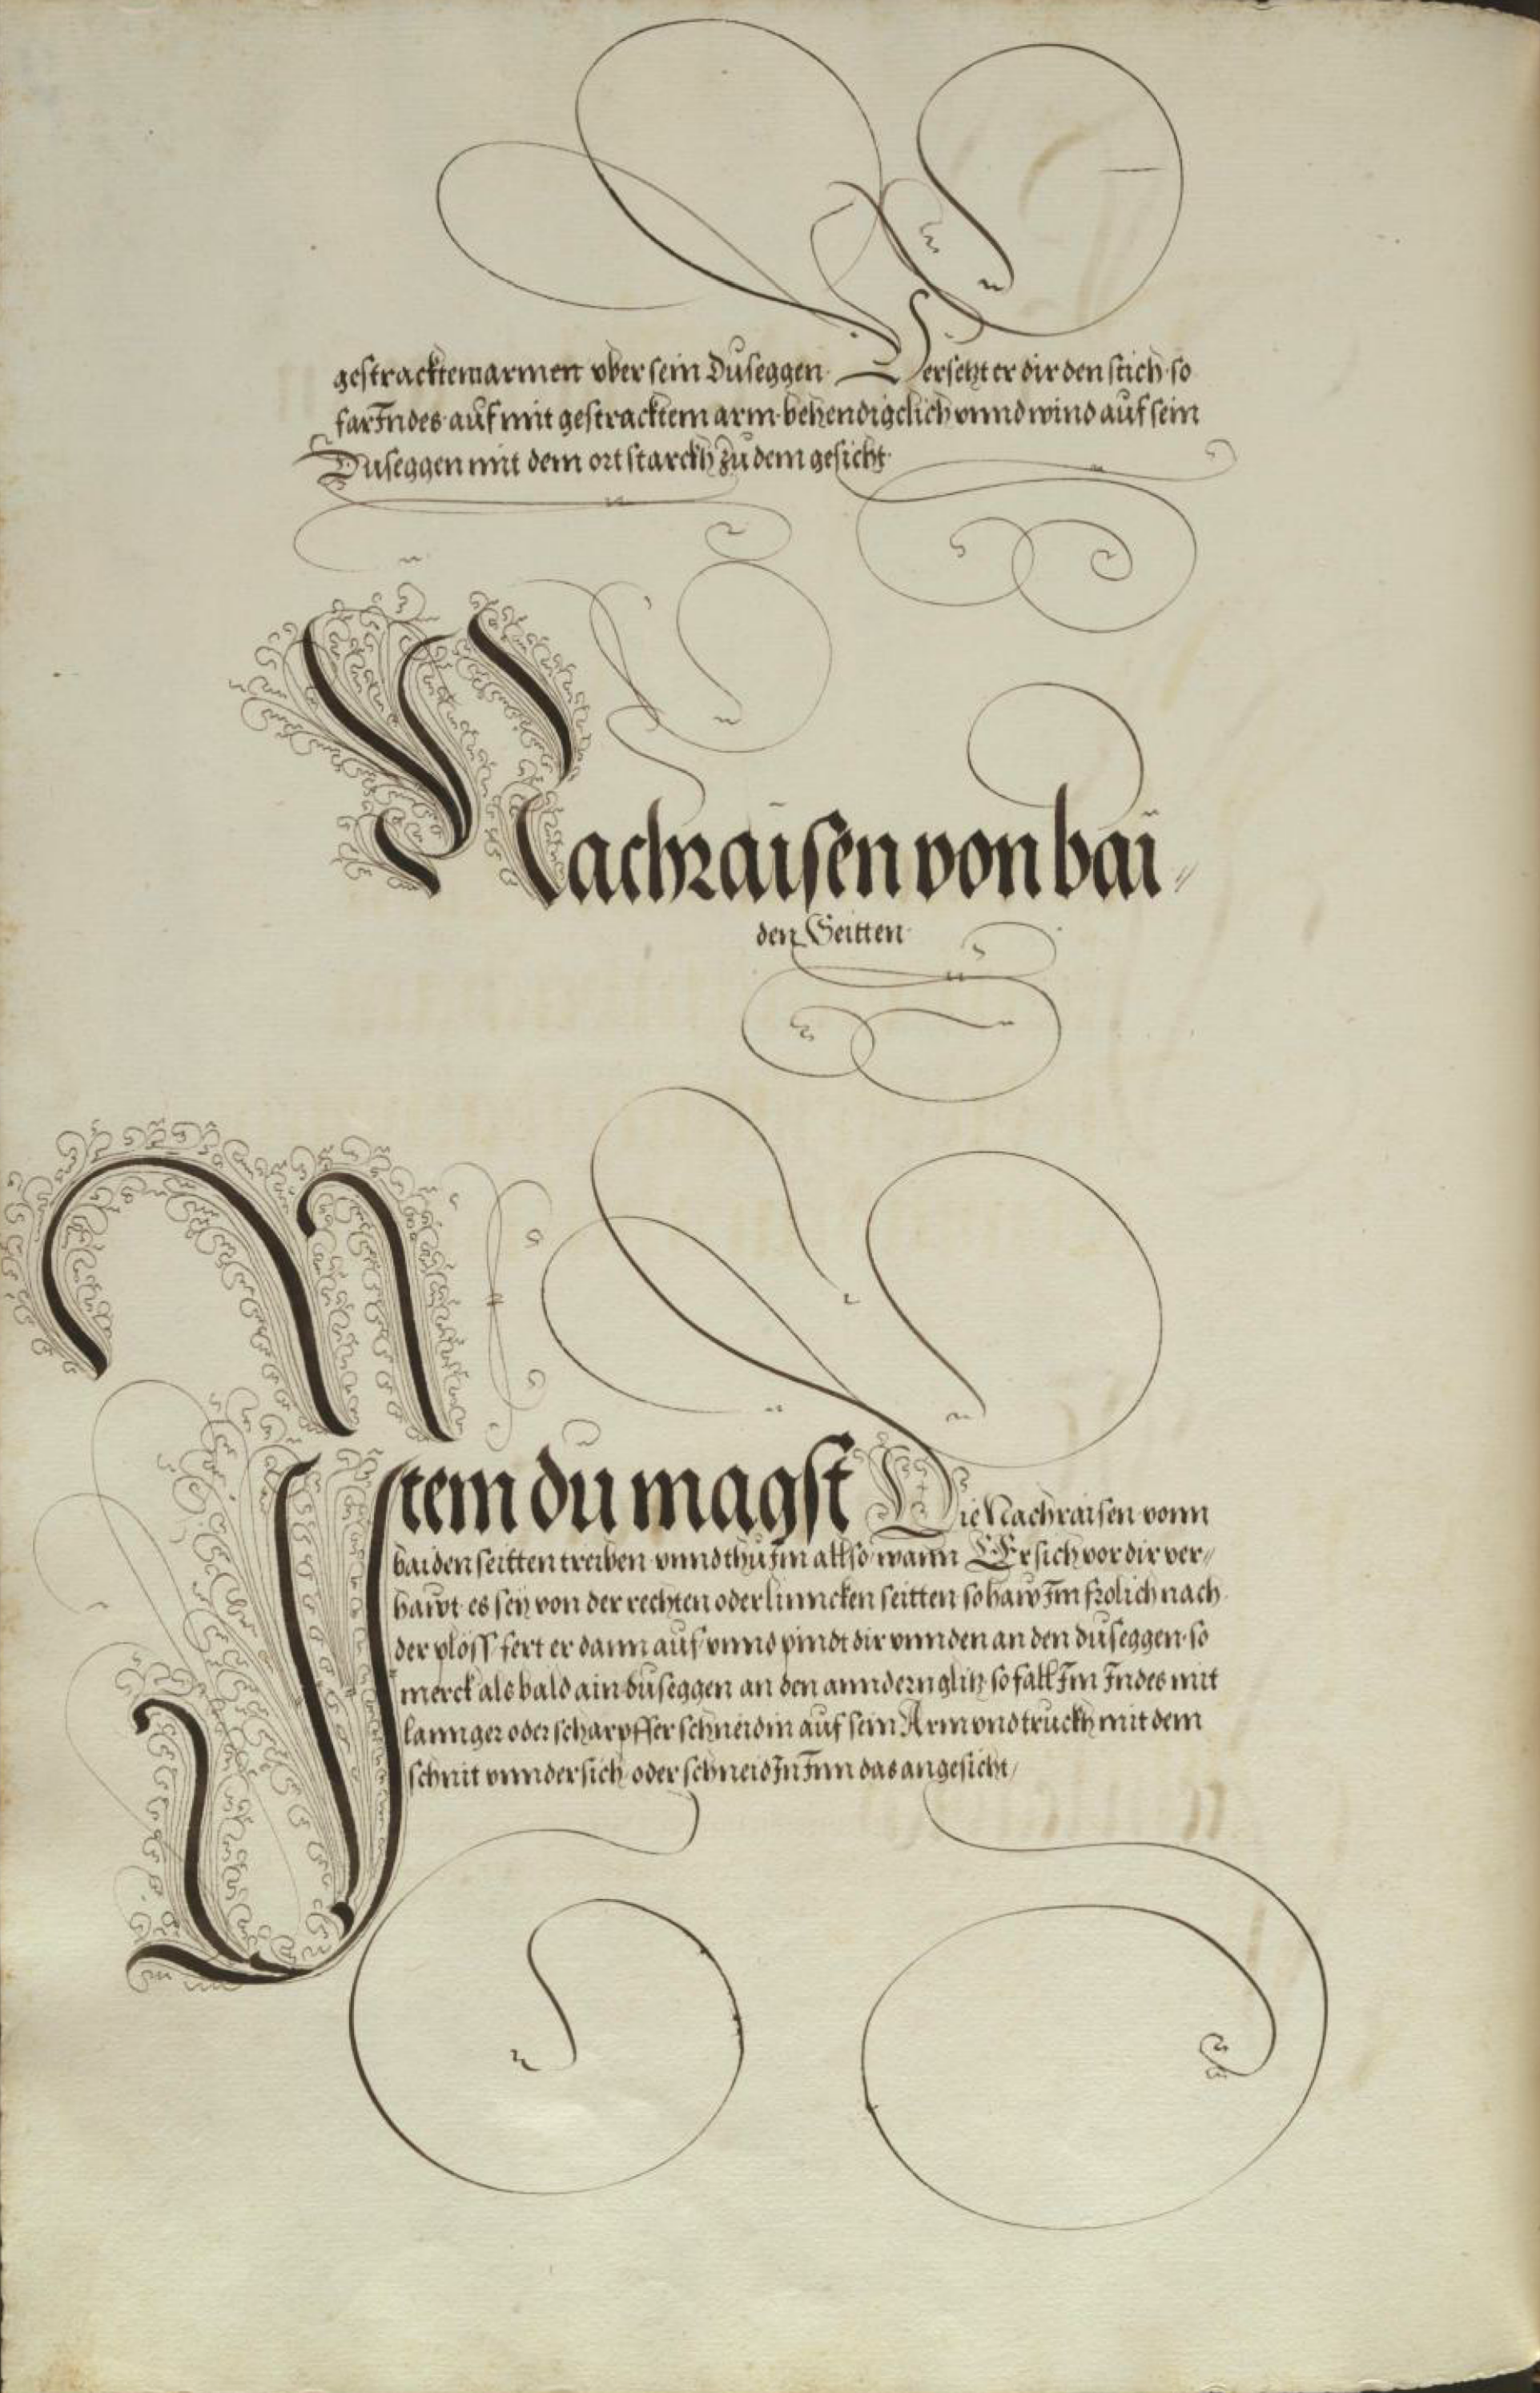 gestracktem armen vber sein Duseggen. Versetzt er dir den stich so
far Indes auf mit gestracktem arm behendigclich vnnd wind auf sein
Duseggen mit dem ort starckh zu dem gesicht
Nachraisen von bai〃
den Seitten
Item du magst Die Nachraisen vonn
baiden seitten treiben vnnd thu im allso, wann Er sich vor dir ver〃
hawt es sey von der rechten oder linncken seitten so haw Im frolich nach
der plöss fert er dann auf vnnd pindt dir vnnden an den duseggen so
merck als bald ain duseggen an den anndern glitz so fall Im Indes mit
lannger oder scharpffer schneidin auf sein Arm vnd truckh mit dem
schnit vnndersich oder schneid In Inn das angesicht /